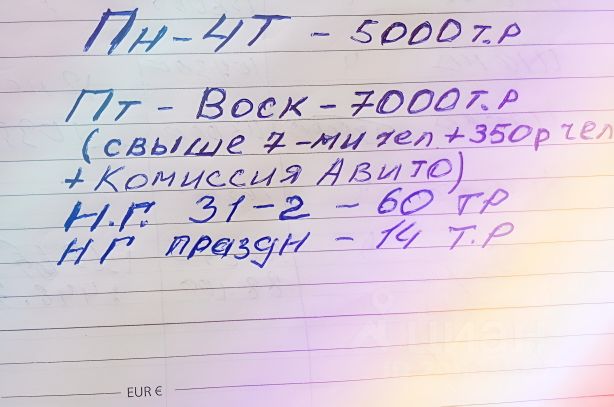 Пн-ЧТ - 5000 т.р
Пт - Воск - 7000 т.р
(свыше 7-ми чел + 350р чел
+ Комиссия Авито)
Н.Г. 31-2 - 60 тр
НГ праздн - 14 т.р
EUR €